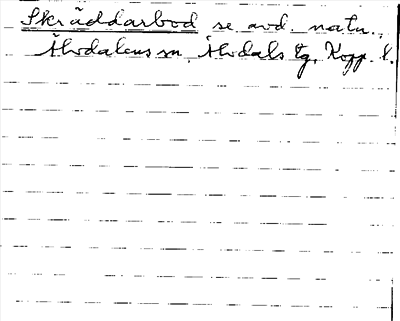 Skräddarbod se avd. natu.
Älvdalens sn, Älvdals tg, Kopp. l.